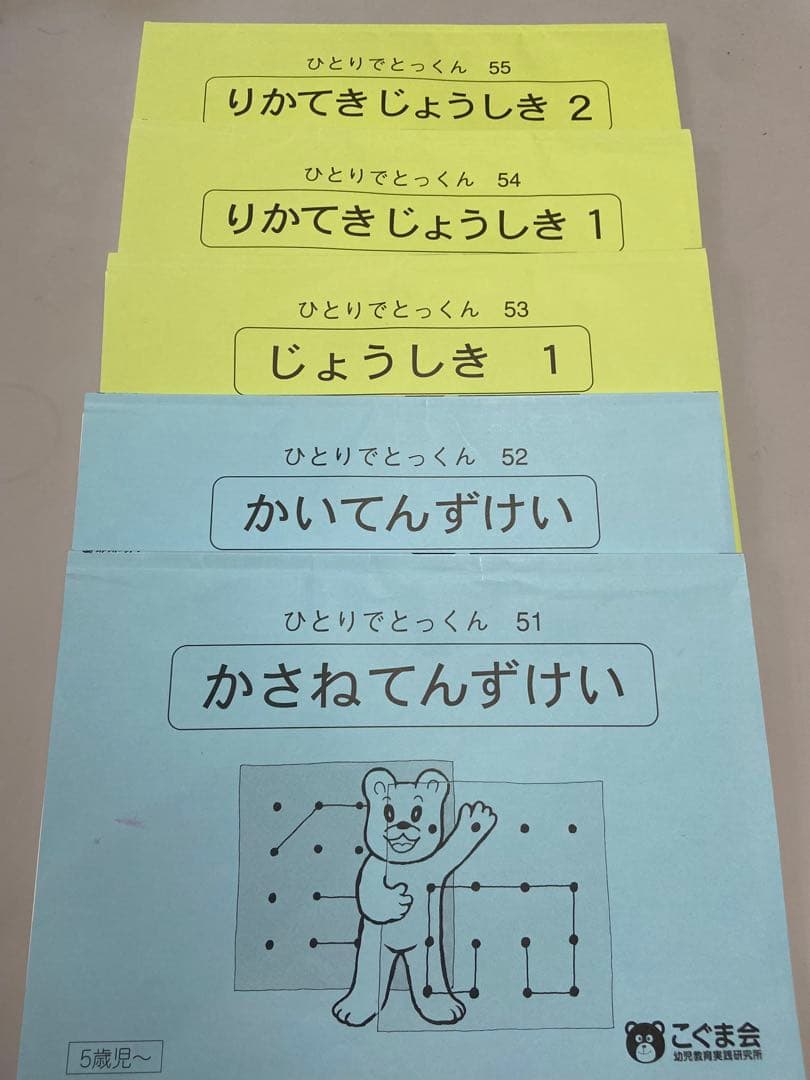 ひとりでとっくん 55
りかてきじょうしき 2
ひとりでとっくん 54
りかてきじょうしき 1
ひとりでとっくん 53
じょうしき 1
ひとりでとっくん 52
かいてんずけい
ひとりでとっくん 51
かさねてんずけい
5歳児~
こぐま会
幼児教育実践研究所